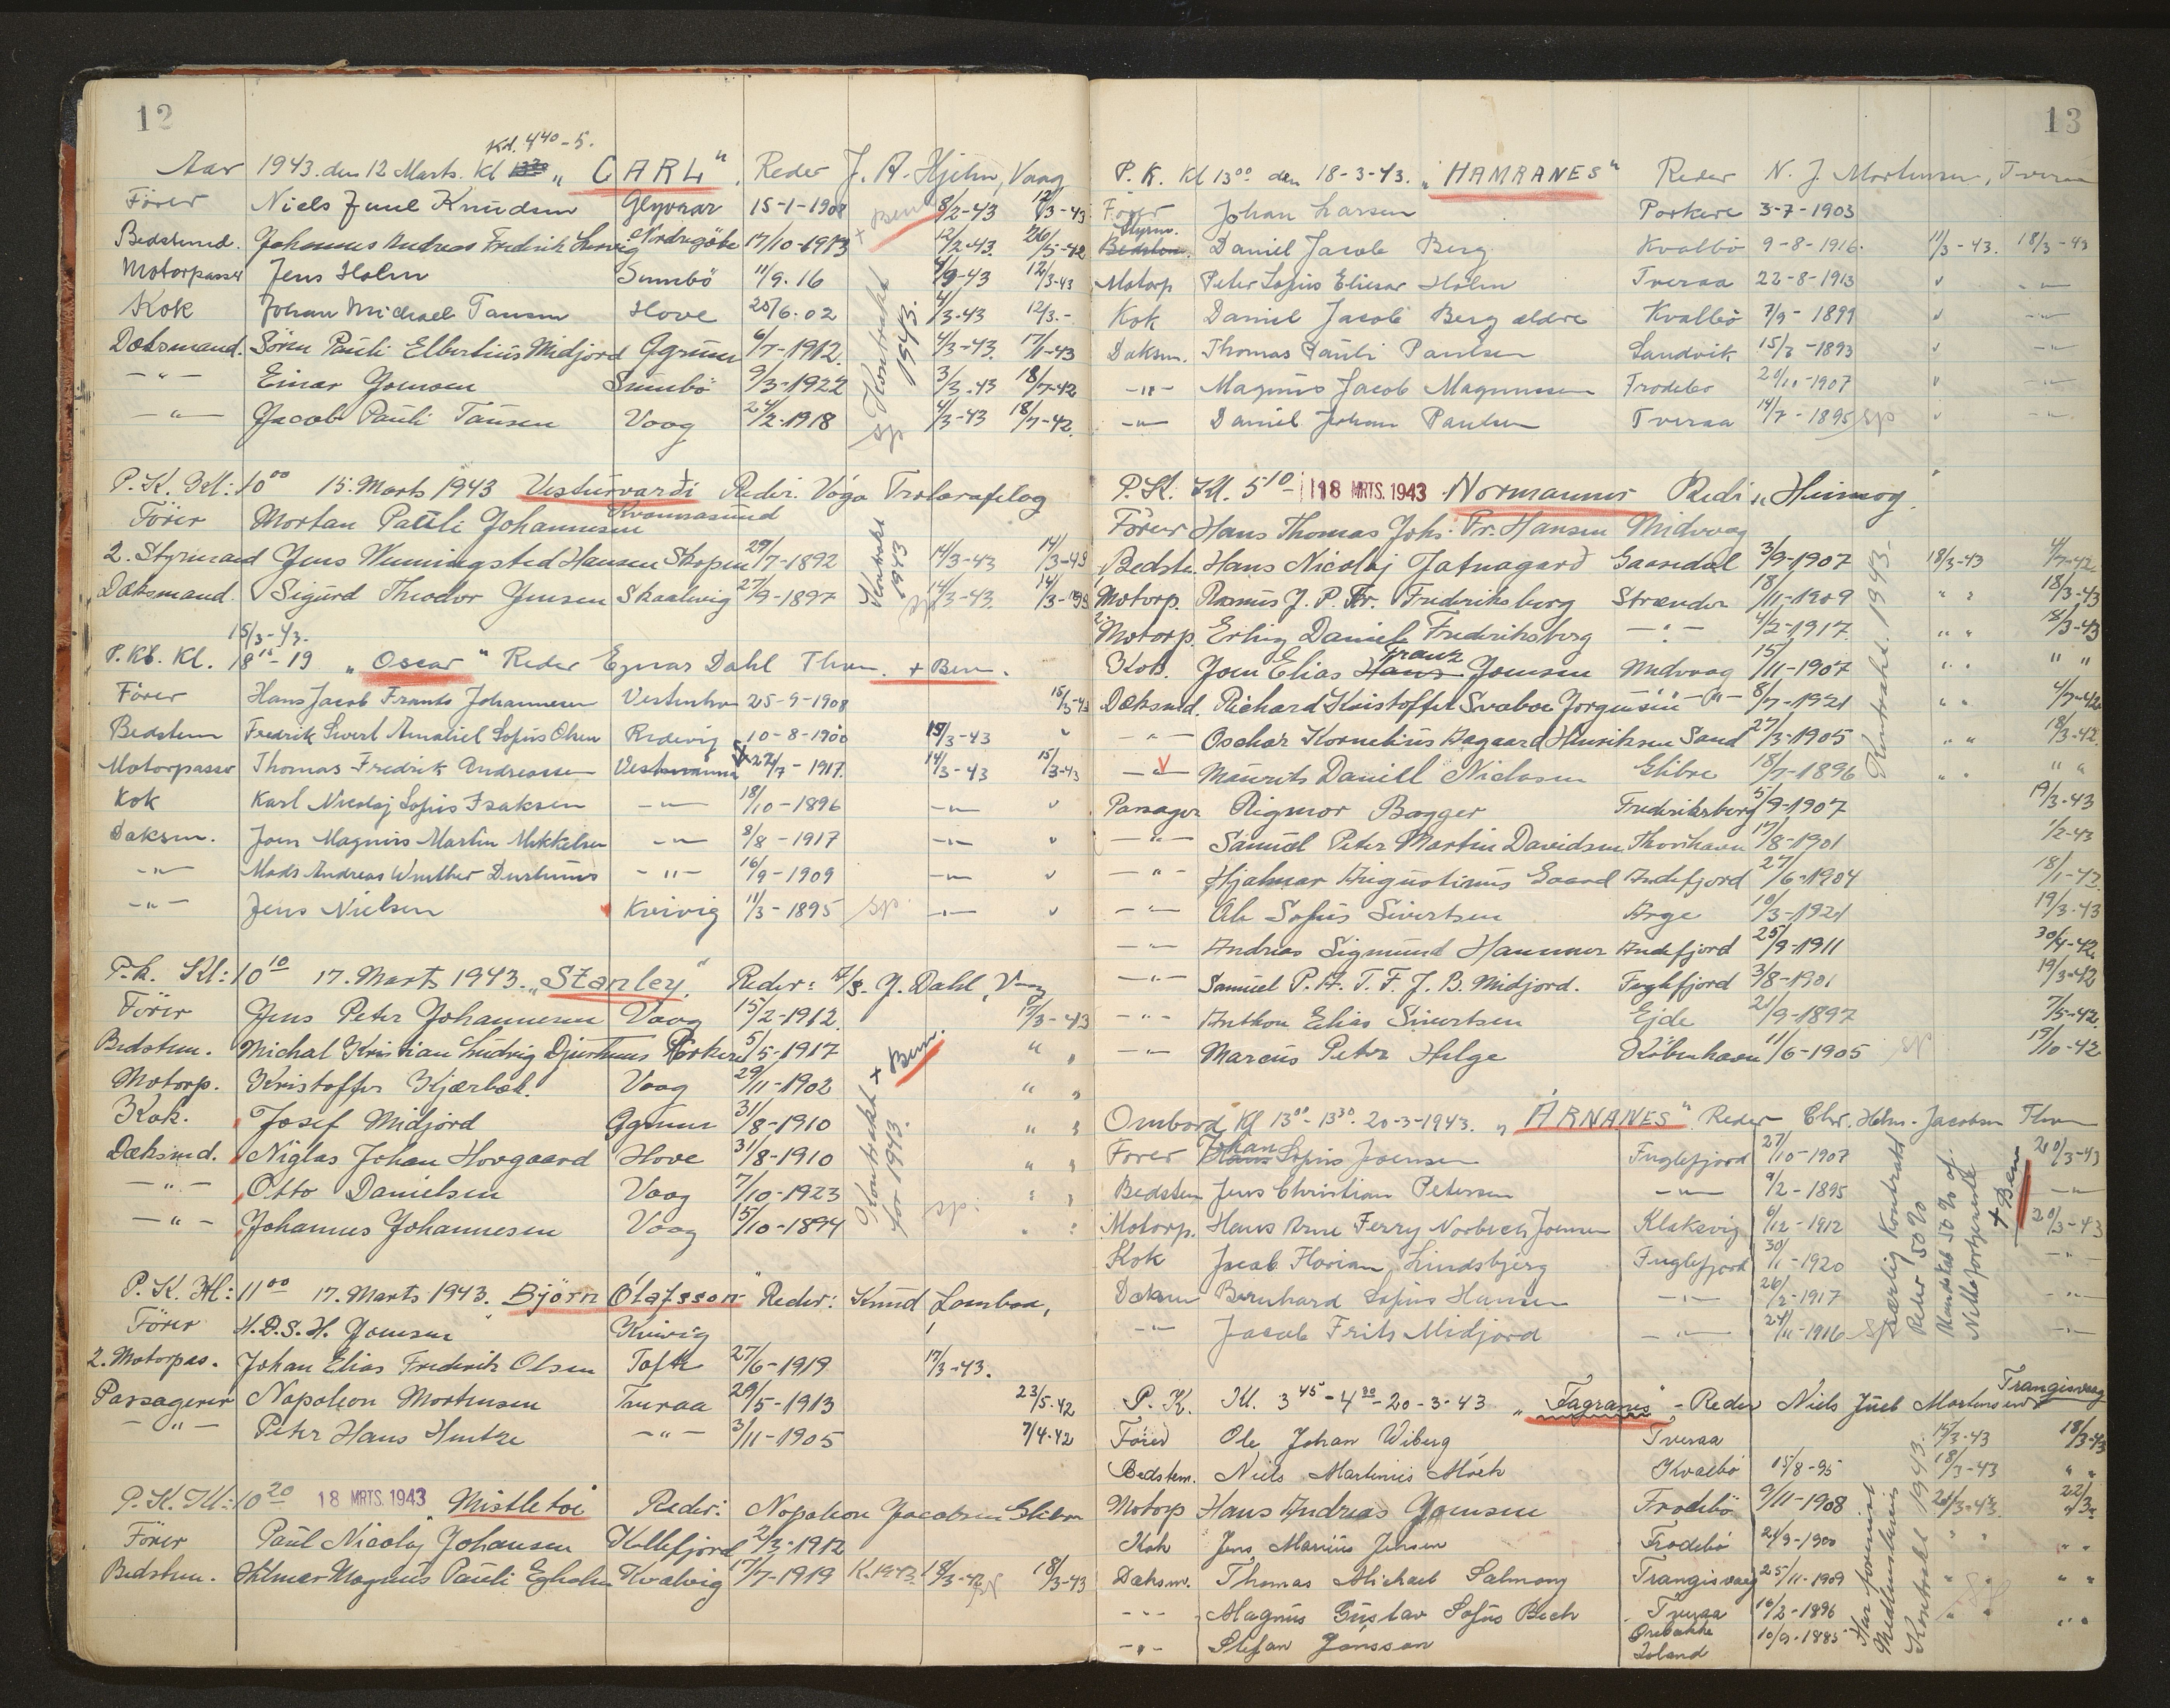 12
Kl. 4⁴⁰-5.
Aar 1943. den 12 Marts. Kl „CARL" Reder J. A. Hjelm, Vaag
Förer Niels Juul Knudsen Glyvrar 15-1-1908 + Bem 8/2-43 12/3-43
Bedstemd. Johannes Andreas Fredrik Nordregöte 17/10-1913 12/2-43. 26/5-42
Motorpasser Jens Holm Sumbö 11/9.16 12/3-43
Kok Johan Michael Tausen Hove 20/6.02 4/3-43 12/3.-
Dæksmand. Sören Pauli Elbertius Midjord 6/7-1912. 4/3-43. 17/11-43
-"- Einar Joensen Sumbö 9/3-1922 3/3.43 18/7-42
-"- Jacob Pauli Tausen Vaag 24/2-1918 4/3-43 18/7-42.
sp Kontrakt 1943.
P.K. Kl: 10⁰⁰ 15. Marts 1943 Vesturvardi Reder. Vága Trolarafelag
Förer Mortan Pauli Johannesen Kvannasund
2. Styrmand Jens Wenningsted Hansen Skopen 29/7-1892 14/3-43 14/3-43
Dæksmand. Sigurd Theodor Jensen Skaalevig 27/9-1897 14/3-43.
Kontrakt 1943 sp
15/3-43.
P.Kl. Kl. -19 „Oscar" Reder Ejnar Dahl Thvn. + Bem.
Förer Hans Jacob Frants Johannesen 25-9-1908 15/3-43
Bedstem Fredrik Sivert Amaliel Sofus Olsen 10-8-1900 15/3-43 "
Motorpasser Thomas Fredrik Andreassen Vestmanna 22/7-1917. 14/3-43 15/3-43
Kok Karl Nicolaj Sofus Isaksen -"- 18/10-1896 -"- "
Daksm. Joen Magnus Martin Mikkelsen -"- 8/8-1917 -"- "
-"- Mads Andreas Winther Durhuus -"- 16/9-1909 -"- "
-"- Jens Nielsen Kvivig 11/3-1895 sp. -"- "
P.K. Kl: 10¹⁰ 17. Marts 1943. „Stanley" Reder: A/S. J. Dahl, Vaag
Förer Jens Peter Johannesen Vaag 15/2-1912. 17/3-43
Bedstem. Michal Kristian Ludvig Djurhuus Porkeri 5/5-1917 " "
Motorp. Kristoffer Kjærbæk. Vaag 29/11-1902 " "
Kok. Josef Midjord 31/8-1910 " "
Dæksmd. Niglas Johan Hovgaard Hove 31/8-1910 " "
-"- Otto Danielsen Vaag 7/10-1923 " "
-"- Johannes Johannesen Vaag 15/10-1894 " "
Kontrakt + Bem. for 1943. sp.
P.K. Kl: 11⁰⁰ 17. Marts 1943. Björn Ólafsson" Reder: Knud
Förer H.D.S.H. Joensen Kvivig
2. Motorpas. Johan Elias Fredrik Olsen Tofte 27/6-1919 17/3-43.
Passagerer Napoleon Mortensen Tveraa 29/5-1913 23/5-42
-"- Peter Hans Hentze -"- 3/11-1905 7/4-42
P.K. Kl: 10²⁰ 18 MRTS. 1943 „Mistletoe" Reder: Napoleon Jacobsen Glibre
Förer Paul Nicolaj Johansen Kollefjord 2/3-1912
Bedstem. Hilmar Magnus Pauli Egholm Kvalvig 17/7-1919 K.1943. 18/3-43
13
P.K. Kl 13⁰⁰ den 18-3-43. „HAMRANES" Reder N. J. Mortensen, Tveraa
Förer Johan Larsen Porkere 3-7-1903
Styrm. Daniel Jacob Berg Kvalbö 9-8-1916. 11/3-43. 18/3-43
Motorp Peter Sofus Eliesar Holm Tveraa 22-8-1913 " -"-
Kok Daniel Jacob Berg ældre Kvalbö 7/9-1899 " -"-
Daksm. Thomas Pauli Poulsen Sandvik 15/3-1893 " -"-
-"- Magnus Jacob Magnussen Frodebo 20/11-1907 " -"-
-"- Daniel Johan Poulsen Tveraa 14/7-1895 sp " -"-
P.K: Kl. 5¹⁰- 18 MRTS. 1943 Normannes Reder „Heimog.
Förer Hans Thomas Johs. Fr. Hansen Midvaag
Bedste. Hans Nicolaj Jatnagard Gaasedal 3/9-1907 18/3-43 4/7-42
Motorp. Rasmus J. P. Fr. Frederiksberg Strænder 18/11-1909 " " 18/3-43
2. Motorp. Erling Daniel Frederiksberg -"- 4/2-1917 " " 18/3-43
Kok. Joen Elias Franz Joensen Midvaag 15/11-1907 " " " "
Dæksmd. Richard Kristoffer Svaboe Jörgensen -"- 8/7-1921 " " 4/7-42
-"- Oschar Kornelius Aagaard Henriksen Sand 27/3-1905 " " 18/3-42.
-"- Mourits Daniel Niclasen Glibre 18/7-1896 " " " "
Kontrakt. 1943.
Passager Rigmor Bagger Frederiksberg 5/9-1907 19/3-43
-"- Samuel Peter Martin Davidsen Thorshavn 17/8-1901 1/2-43
-"- Hjalmar Augustinus Gaard Andefjord 27/6-1904 18/1-42
-"- Ole Sofus Sivertsen Arge 10/3-1921 19/3-43
-"- Andrias Sigmund Hammer Andefjord 25/9-1911 30/4-42.
-"- Samuel P. A. T. F. J. B. Midjord. Fuglefjord 3/8-1901 19/3-42
-"- Anthon Elias Sivertsen Ejde 21/9-1897 7/5-42.
-"- Marcus Peter Helge København 11/6-1905 sp 19/10-42
Ombord Kl 13⁰⁰-13³⁰. 20-3-1943. „ÁRNANES" Reder Chr. Holm-Jacobsen Thvn
Förer Johan Sofus Joensen Fuglefjord 27/10-1907 20/3-43
Bedstem Jens Christian Petersen -"- 9/2-1895 -"-
Motorp. Hans Arne Ferry Norbech Joensen Klaksvig 6/12-1912 20/3-43
Kok Jacob Florian Lindsbjerg Fuglefjord 30/1-1920 -"-
Daksm Bernhard Sofus Hansen -"- 26/2-1917 -"-
-"- Jacob Frits Midjord -"- 24/11-1916 -"-
Særlig Kontrakt Reder 50% Mandskab 50% af Nettofortjeneste + Bem
P.K. Kl. 3⁴⁵-4³⁰-20-3-43 „Fagranes" - Reder Niels Juel Mortensen Trangisvaag
Förer Ole Johan Wiberg Tveraa 15/3-43 18/3-43
Bedstem. Niels Martinus Mörk Kvalbö 15/8-95 18/3-43 " "
Motorp Hans Andreas Joensen Frodebö 9/11-1908 20/3-43. 22/3-
Kok Jens Marius Jensen Frodebö 21/9-1900 " " " "
Daksm. Thomas Michael Salmony Trangisvaag 25/11-1909 " " " "
-"- Magnus Gustav Sofus Bech Tveraa 16/2-1896 " " " "
-"- Stefan Jónsson Island 10/9-1885
Har forevist Medlemsbevis Kontrakt 1943.